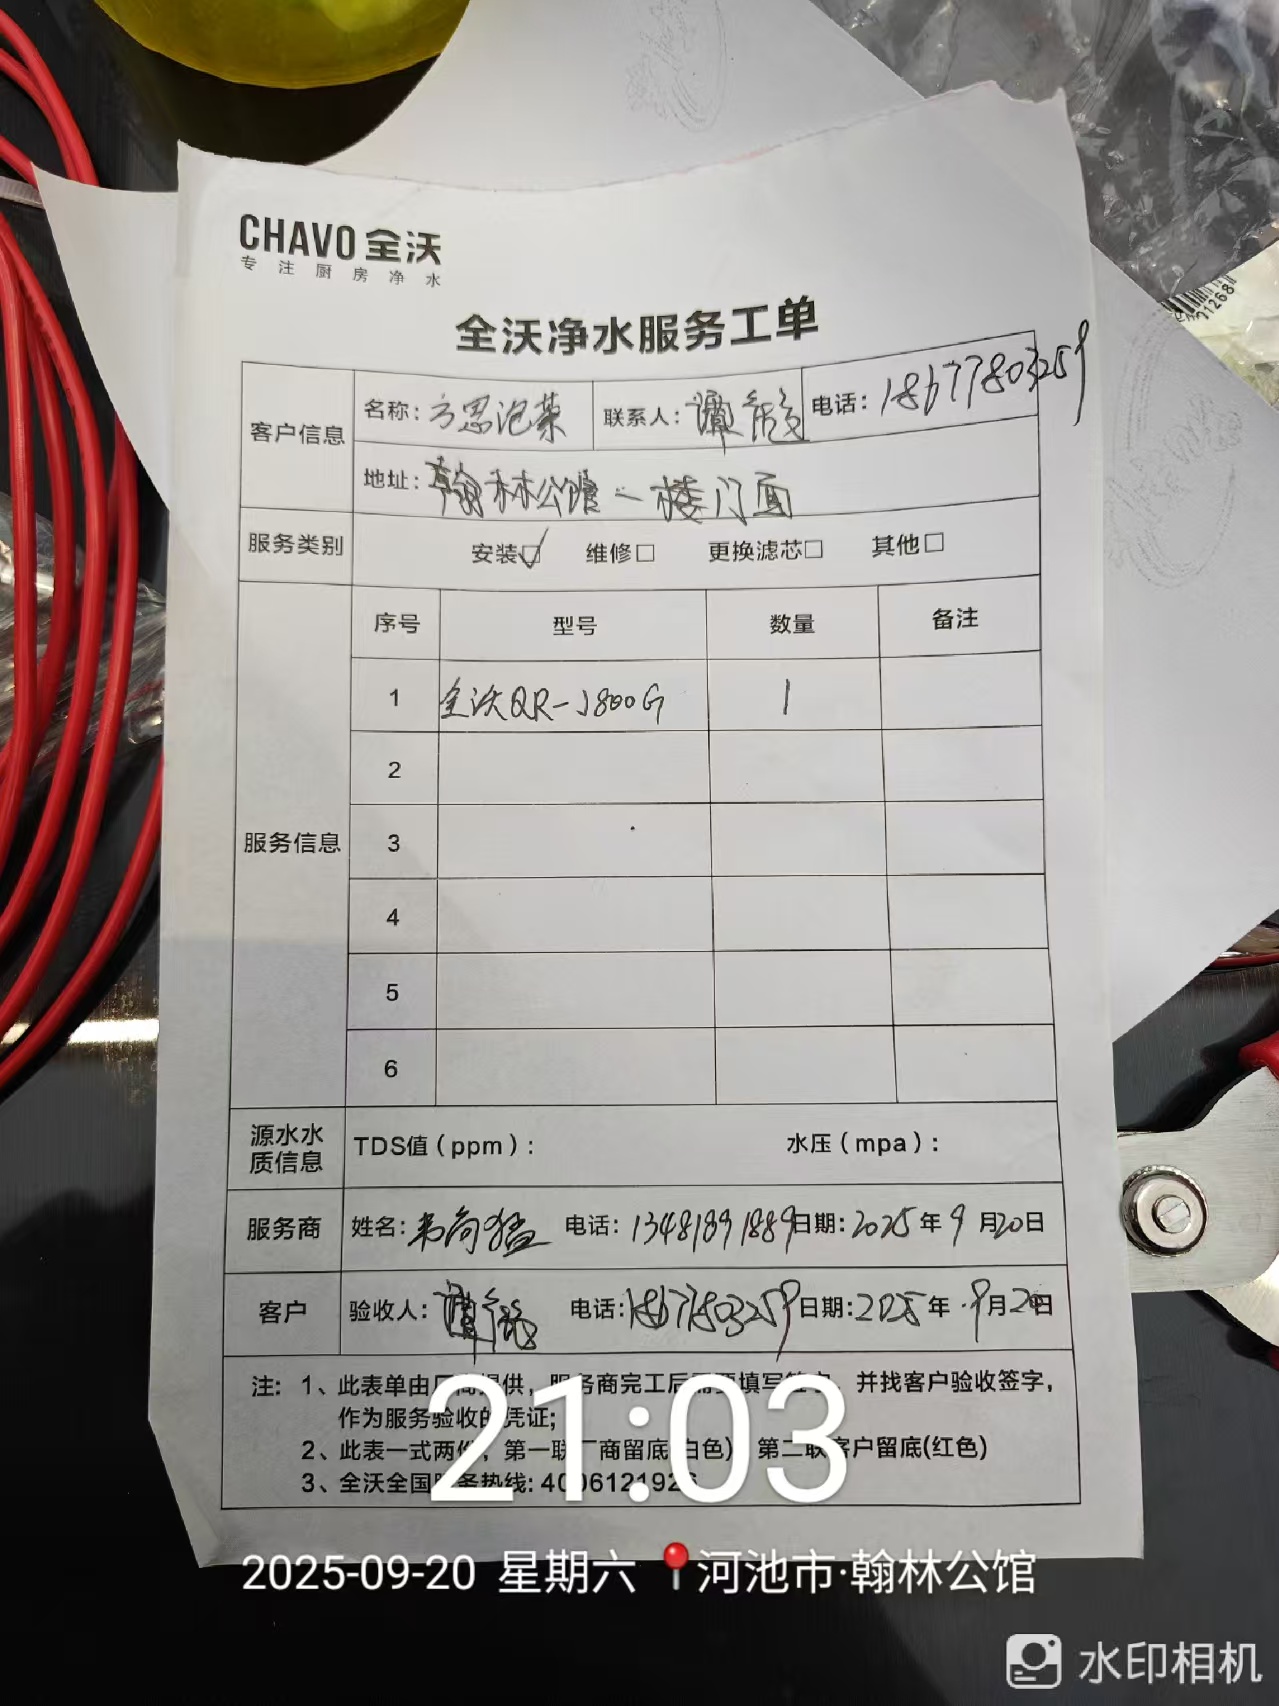 CHAVO 全沃
专注厨房净水
全沃净水服务工单
客户信息 名称：方思泡菜 联系人：谭 电话：18677803259
地址：翰林公馆一楼门面
服务类别 安装☑ 维修□ 更换滤芯□ 其他□
服务信息 序号 型号 数量 备注
1 全沃QR-J800G 1
2
3
4
5
6
源水水质信息 TDS值（ppm）： 水压（mpa）：
服务商 姓名：韦尚猛 电话：13481891889 日期：2025年9月20日
客户 验收人：谭 电话：18677803259 日期：2025年9月20日
注：1、此表单由厂商提供，服务商完工后需要填写签字，并找客户验收签字，
作为服务验收的凭证；
2、此表一式两份，第一联厂商留底(白色)，第二联客户留底(红色)
3、全沃全国服务热线：4006121926
21:03
2025-09-20 星期六 河池市·翰林公馆
水印相机